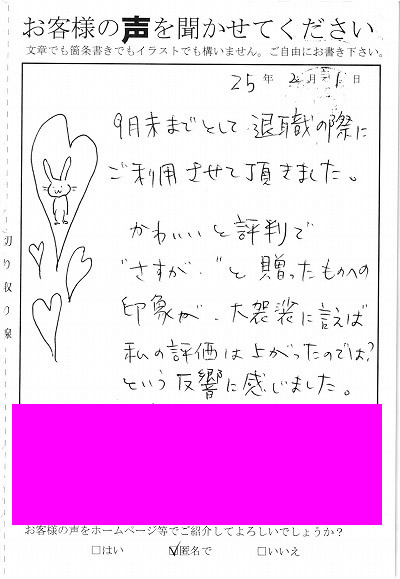 お客様の声を聞かせてください
文章でも箇条書きでもイラストでも構いません。ご自由にお書き下さい。
25年 2月 1日
9月末までとして退職の際に
ご利用させて頂きました。
かわいいと評判で
"さすが。"と贈ったものへの
印象が、大袈裟に言えば
私の評価は上がったのでは?
という反響に感じました。
切り取り線
お客様の声をホームページ等でご紹介してよろしいでしょうか?
□はい ☑匿名で □いいえ